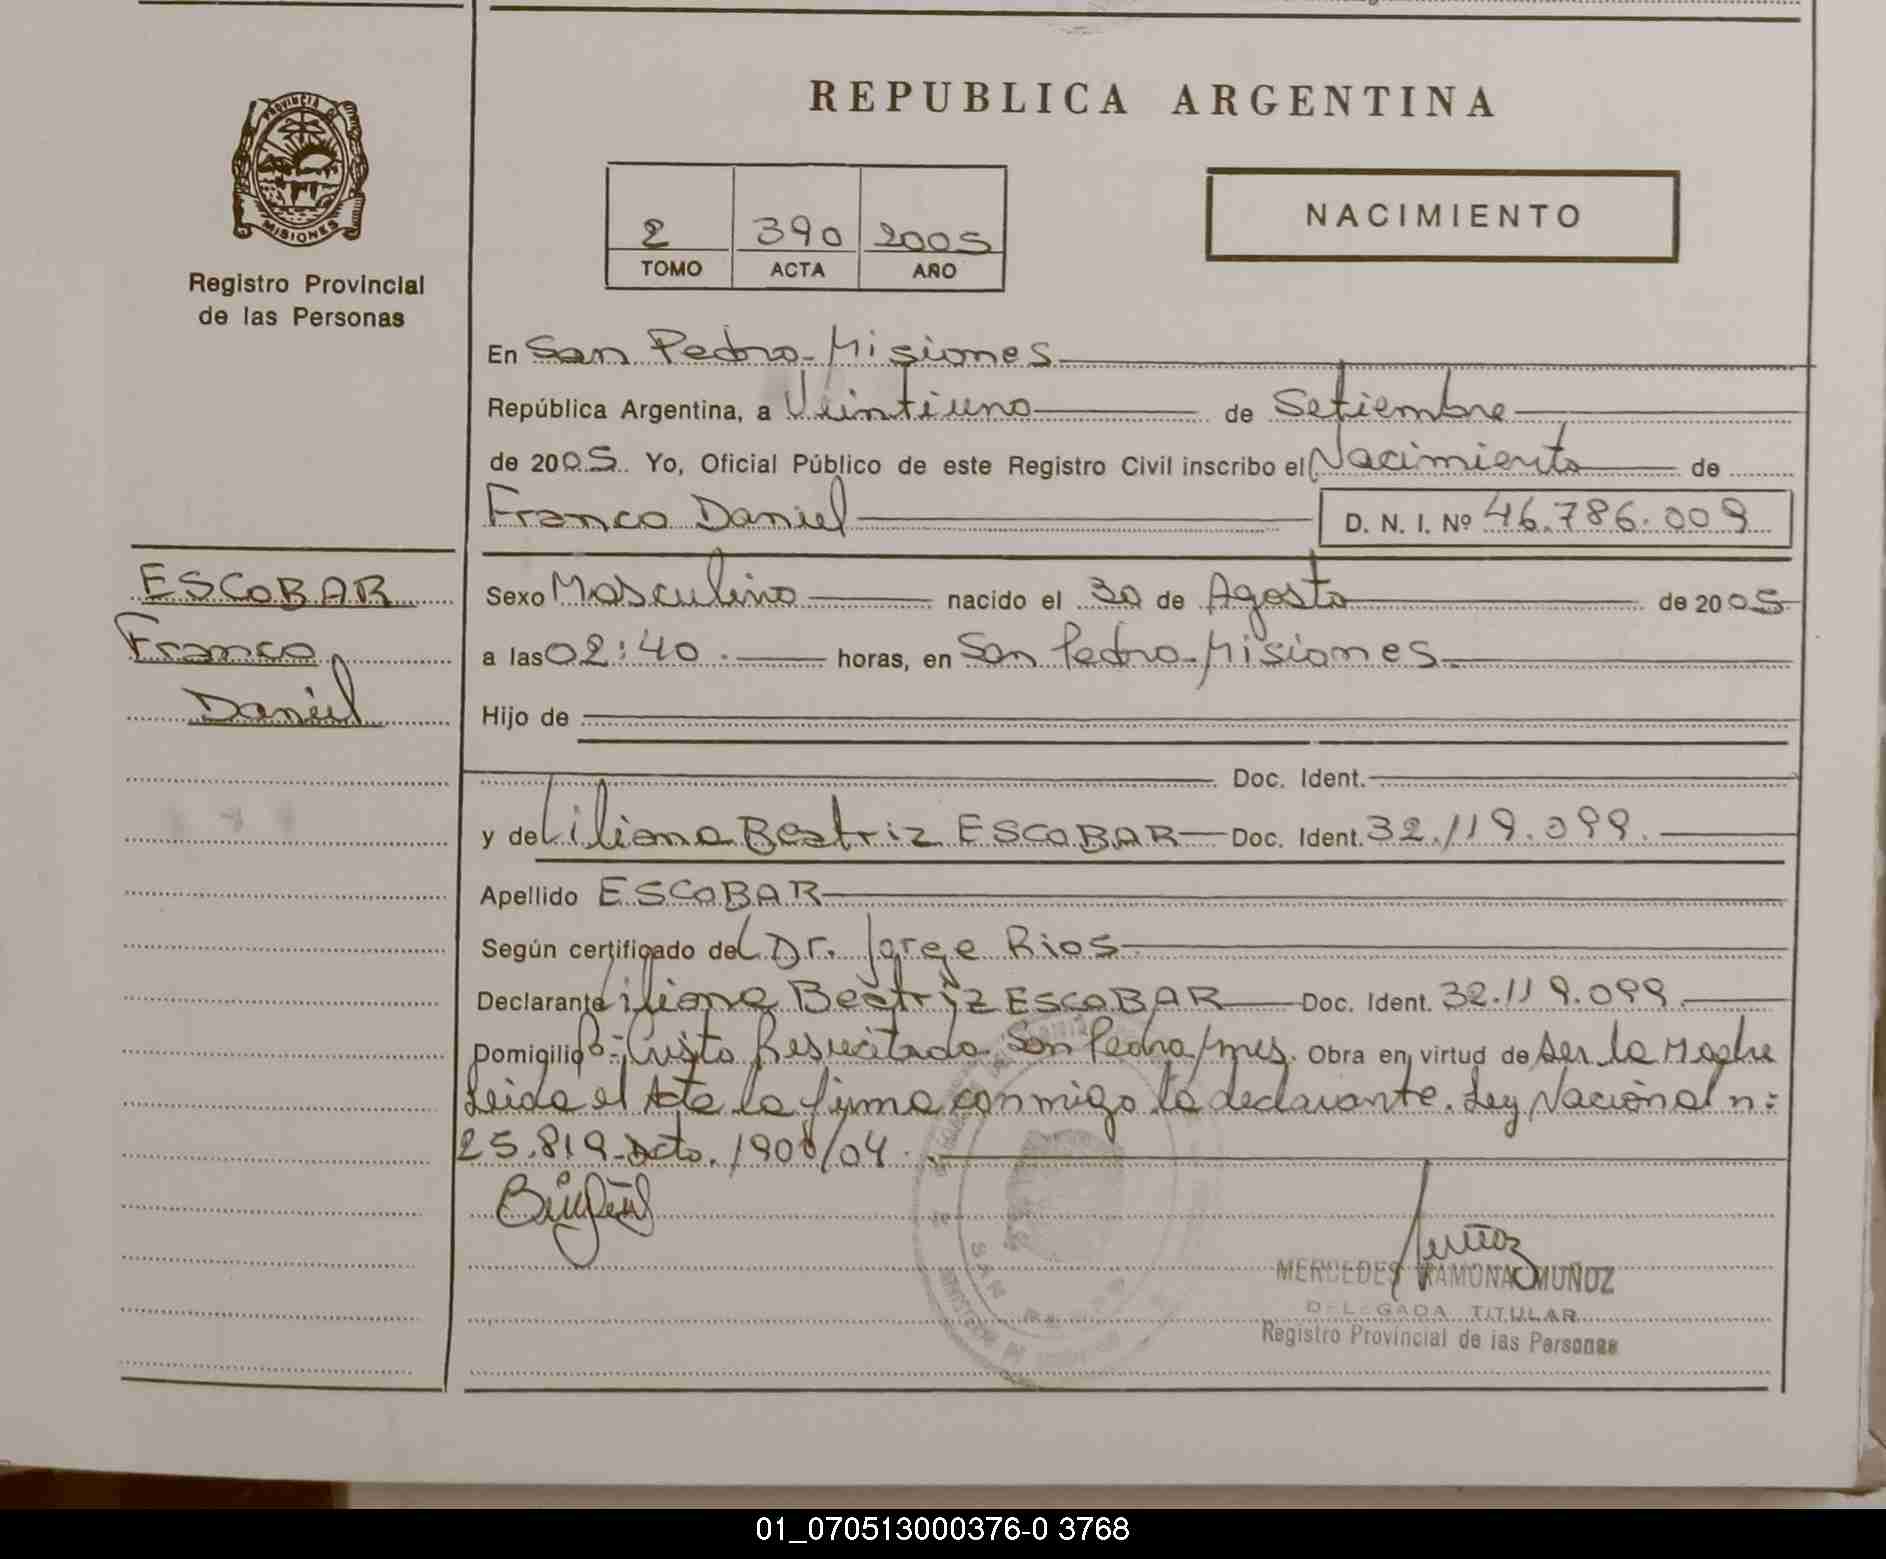 REPUBLICA ARGENTINA
PROVINCIA DE
MISIONES
Registro Provincial
de las Personas
NACIMIENTO
2 390 2005
TOMO ACTA AÑO
En San Pedro-Misiones
República Argentina, a Veintiuno de Setiembre
de 2005. Yo, Oficial Público de este Registro Civil inscribo el Nacimiento de
Franco Daniel D. N. I. Nº 46.786.009
ESCOBAR
Franco
Daniel
Sexo Masculino nacido el 30 de Agosto de 2005
a las 02:40. horas, en San Pedro-Misiones
Hijo de
Doc. Ident.
y de Liliana Beatriz ESCOBAR Doc. Ident. 32.119.099.
Apellido ESCOBAR
Según certificado del Dr. Jorge Rios
Declarante Liliana Beatriz ESCOBAR Doc. Ident. 32.119.099.
Domicilio Bº-Cristo Resucitado San Pedro/mnes. Obra en virtud de ser la Madre
Leida el Acta la firma conmigo la declarante. Ley Nacional n:
25.819-Dcto. 1900/04.
Muñoz
MERCEDES RAMONA MUÑOZ
DELEGADA TITULAR
Registro Provincial de las Personas
SAN PEDRO
01_070513000376-0 3768